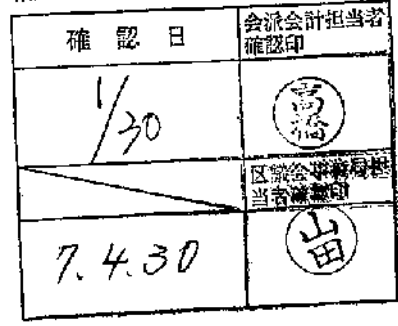 確認日
会派会計担当者
確認印
1/30
高橋
区議会事務局担
当者確認印
7.4.30
山田